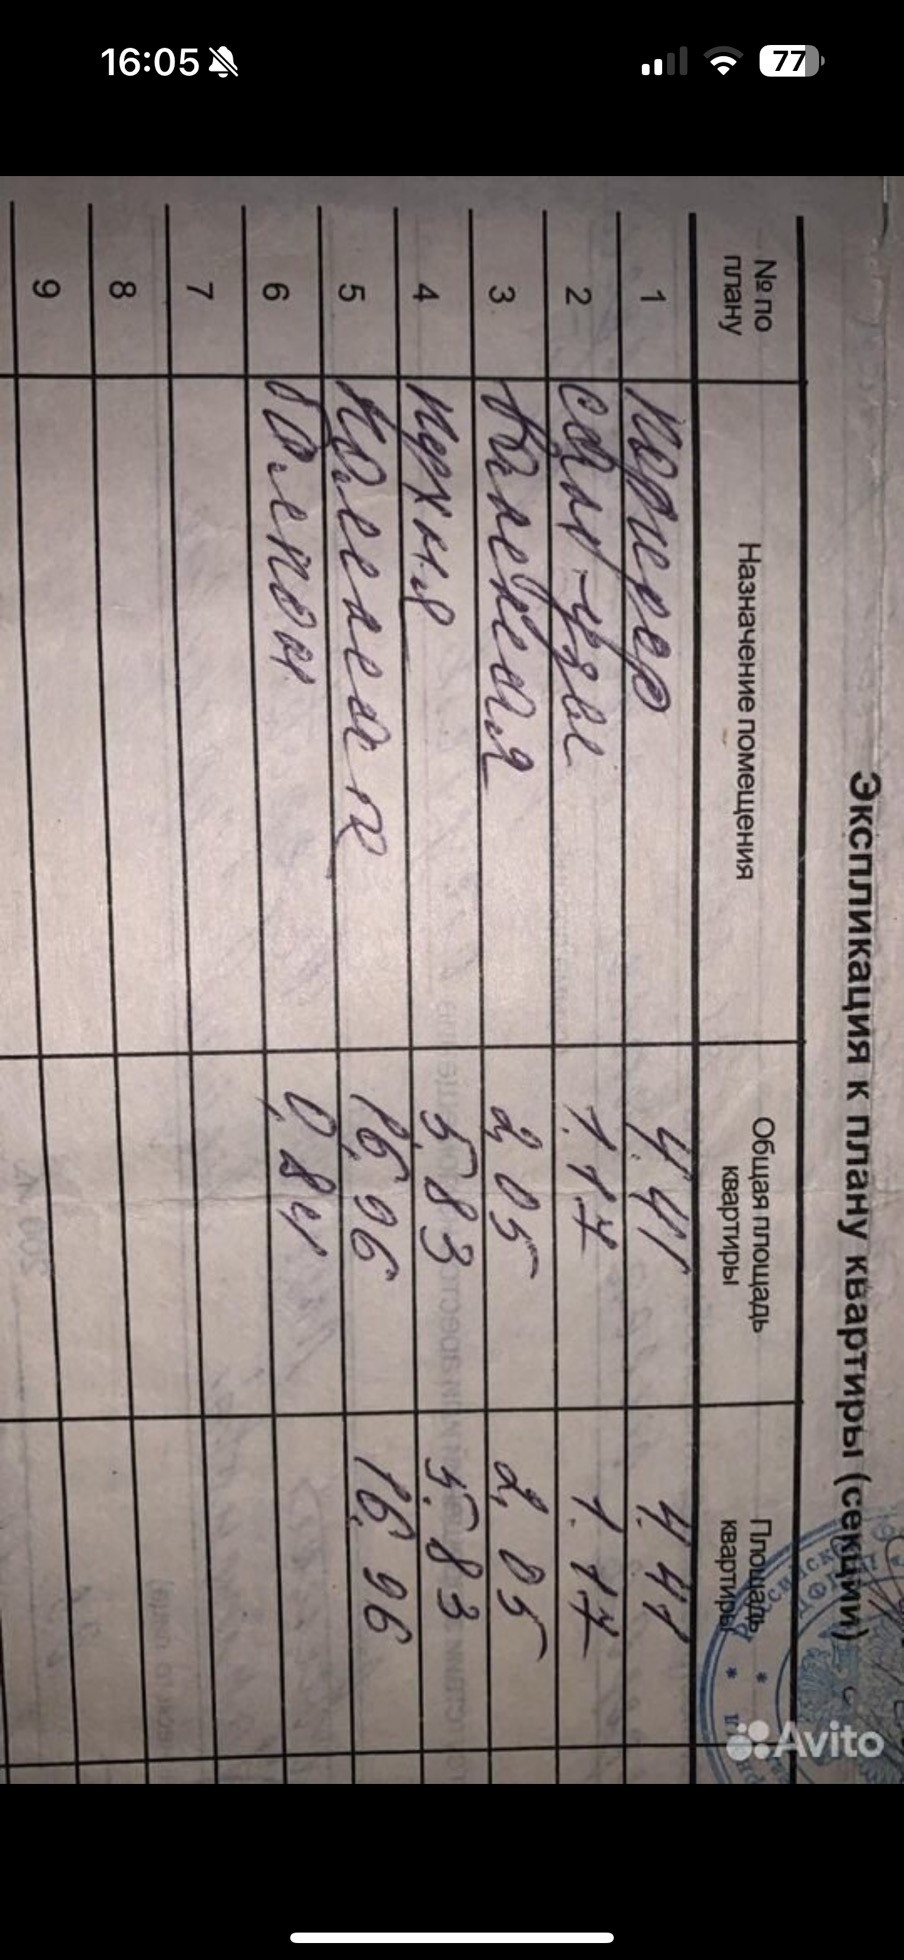 16:05
77
Экспликация к плану квартиры (секции)
№ по плану Назначение помещения Общая площадь квартиры Площадь квартиры
1 коридор 4.41 4.41
2 сан-узел 1.17 1.17
3 2,05 2,05
4 кухня 5,83 5.83
5 комната 16,96 16,96
6 балкон 0,84
7
8
9
Avito